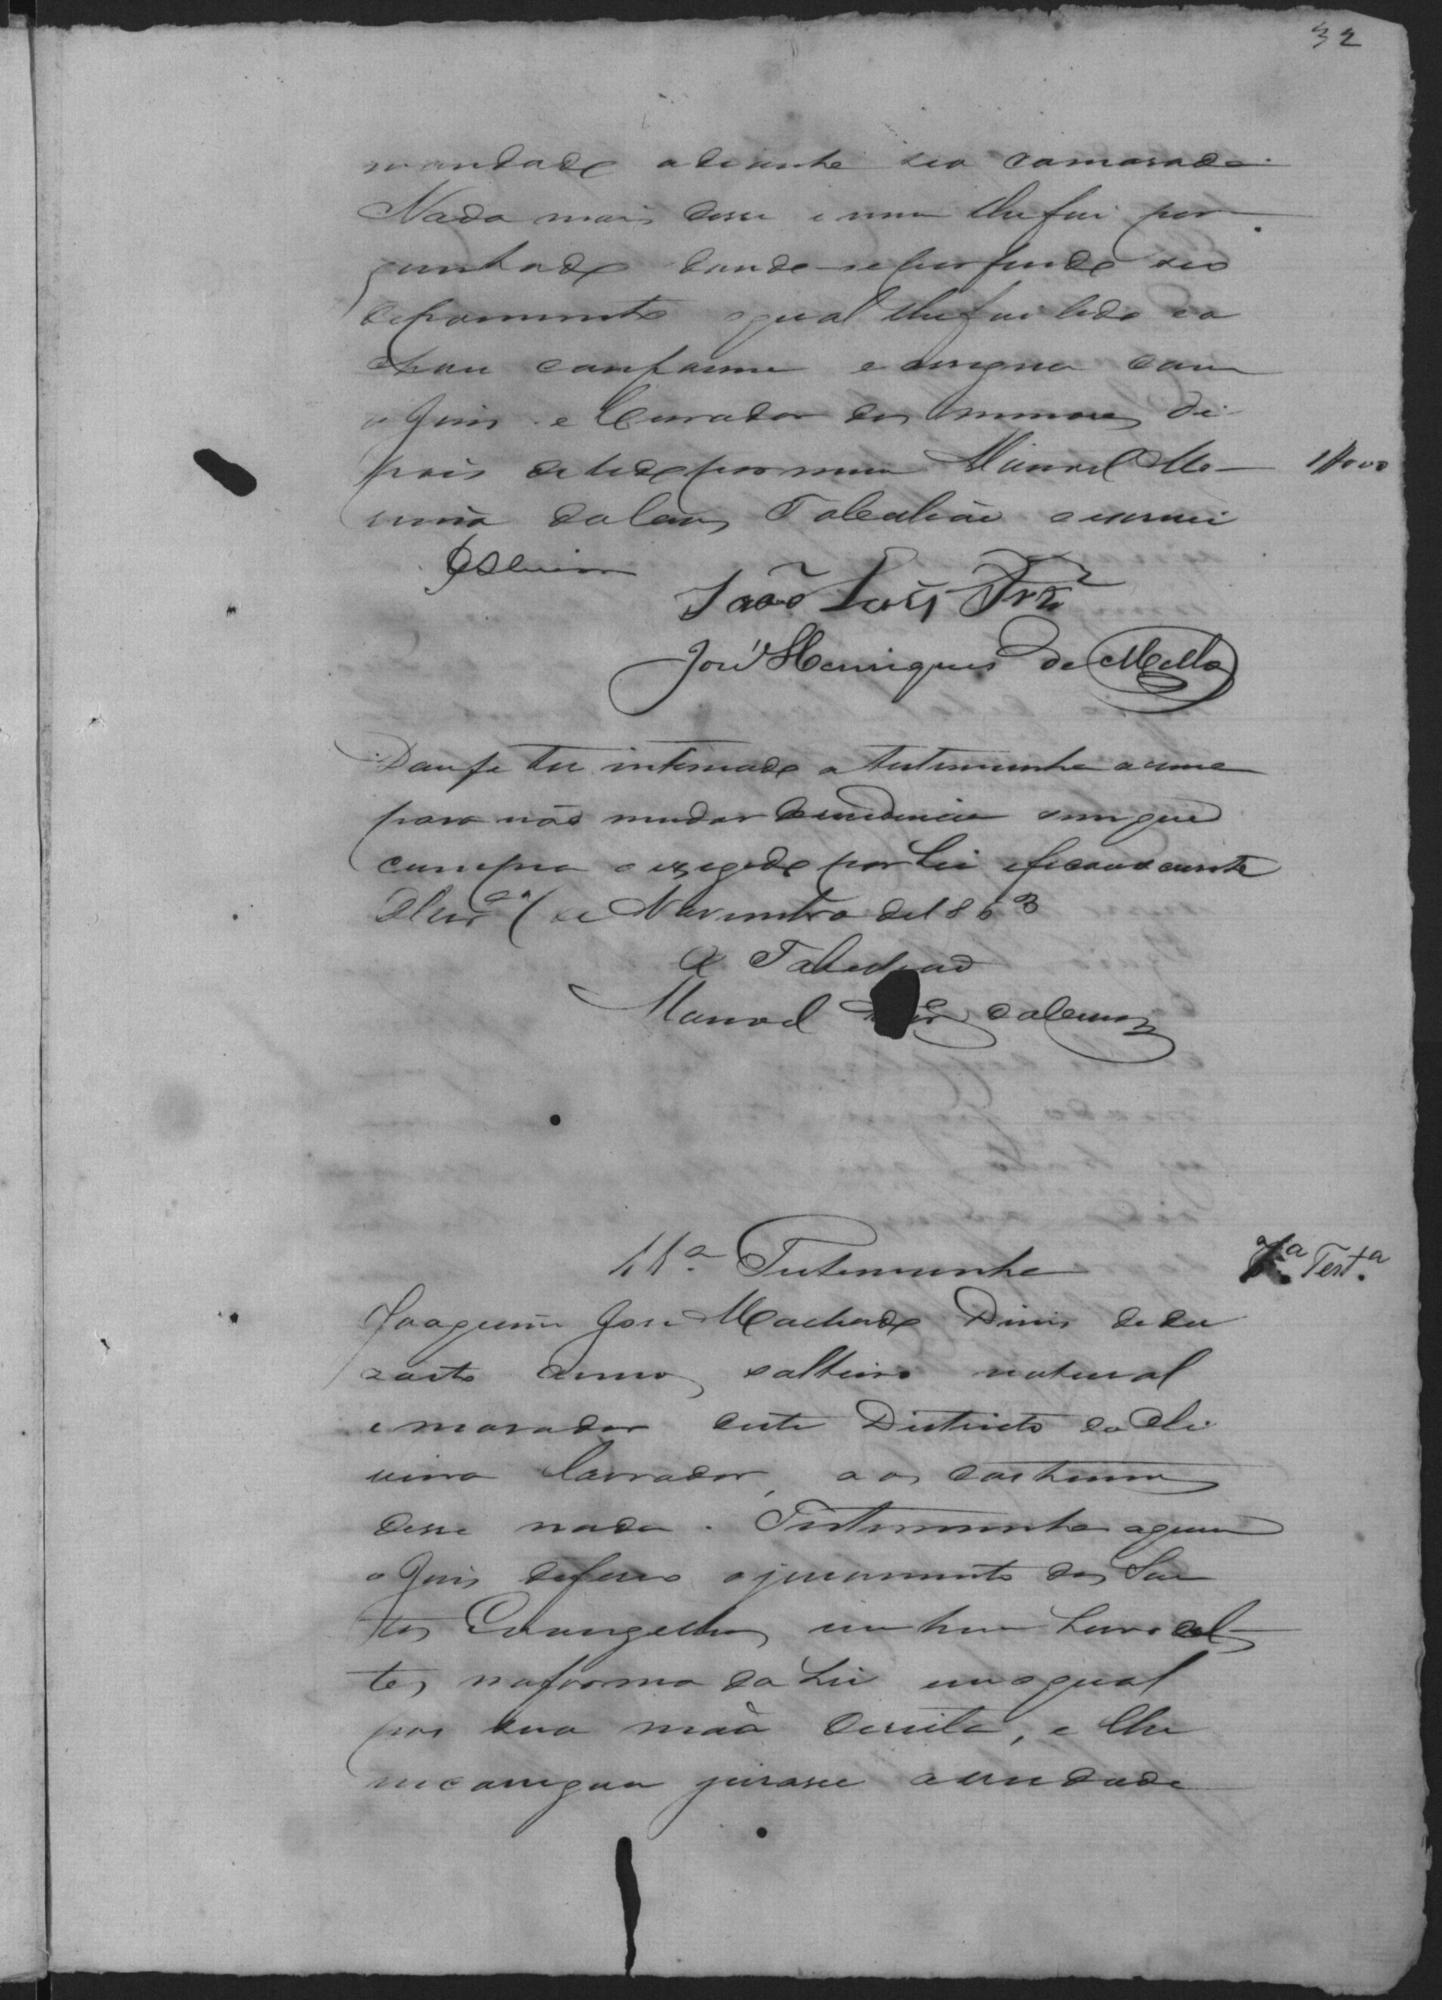 32
mandado adiante seo camarada.
Nada mais disse e nem lhe foi per
guntado dando-se por findo seo
depoimento o qual lhe foi lido e a
chou conforme e assigna com
o Juis e Curador dos menores de
pois de lido por mim Manoel
Tabaliaõ escrevi
João Luis
José Henriques de Mello
Dou fe ter intimado a testemunha acima
para não mudar de residencia sem que
cumpra o exegido por Lei e ficou sciente
de Novembro de 1863
O Tabaliaõ
Manoel
11ª Testemunha
7ª Testª
Joaquim José Machado Dinis de de
zoito annos solteiro natural
e morador deste Districto da Oli
veira lavrador, aos costumes
disse nada. Testemunha a quem
o Juis deferio o juramento dos San
tos Evangelhos em hum Livro del
les na forma da Lei em o qual
pos sua maõ direita, e lhe
encarregou jurasse a verdade